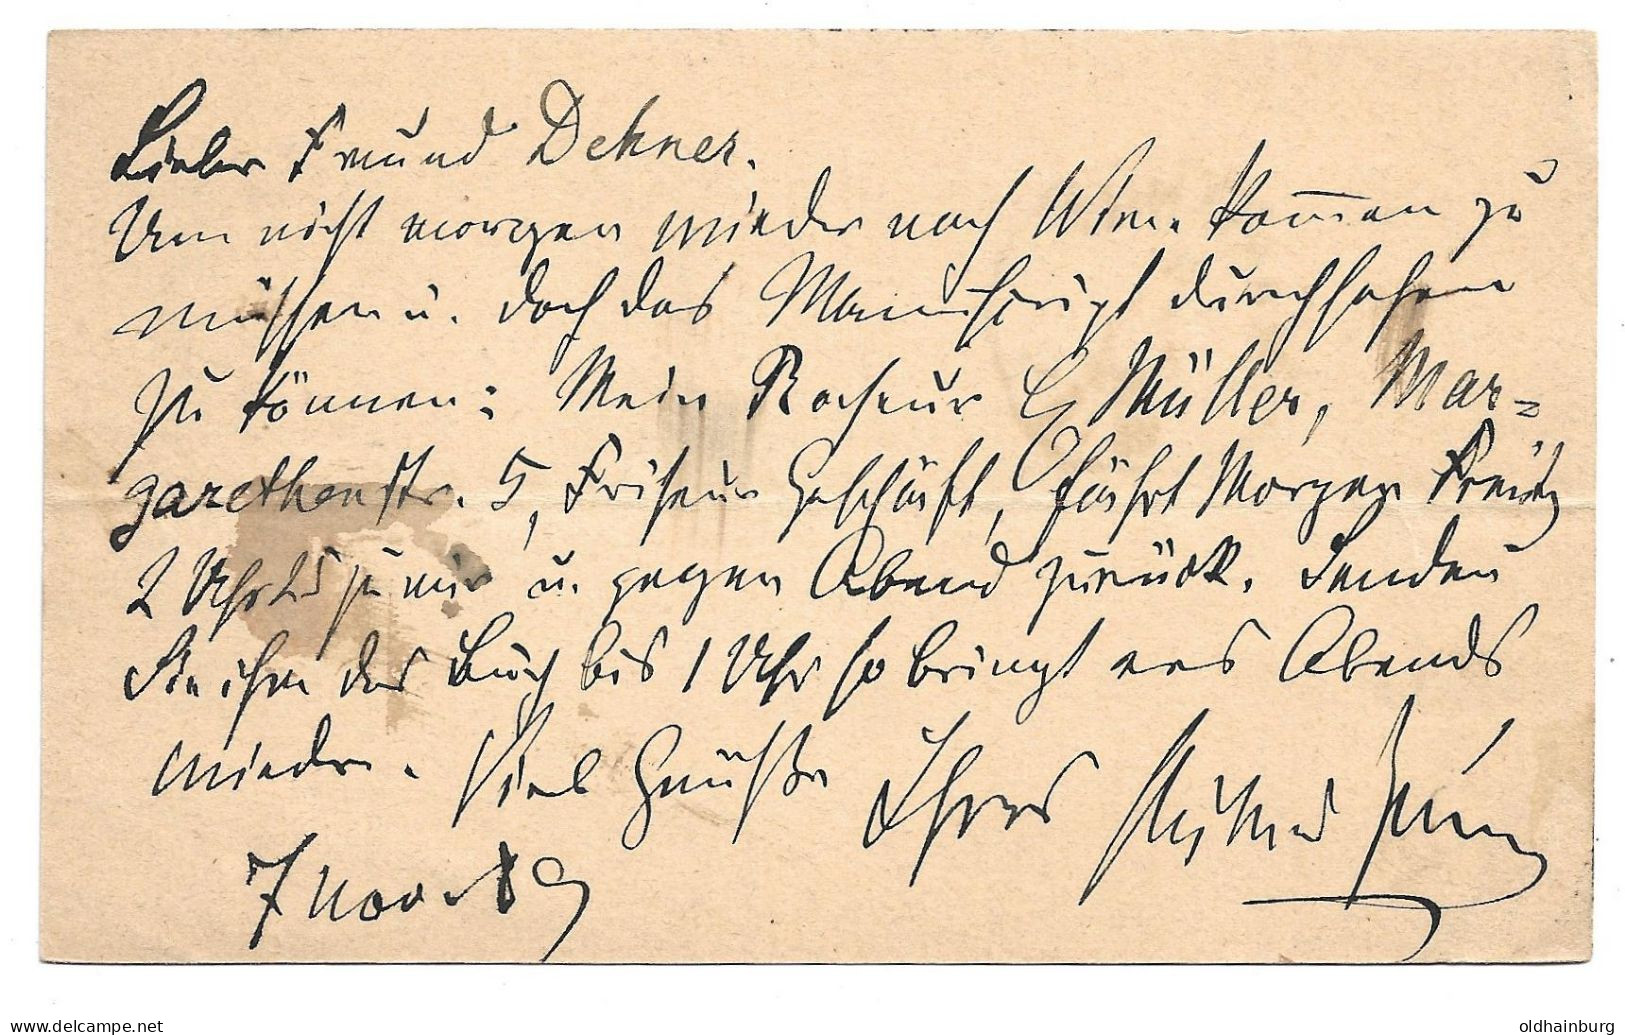 Lieber Freund Dehner.
Um nicht morgen wieder nach Wien kommen zu
müssen u. doch das Manuscript durchsehen
zu können: Mein Raseur Müller, Mar-
garethenstr. 5, Friseur Geschäft, fährt Morgen Freitg
2 Uhr 25 zu mir u. gegen Abend zurück. Senden
Sie ihm das Buch bis 1 Uhr so bringt ers Abends
wieder. Viel Grüße Ihres
7 Nov. 89
www.delcampe.net
oldhainburg